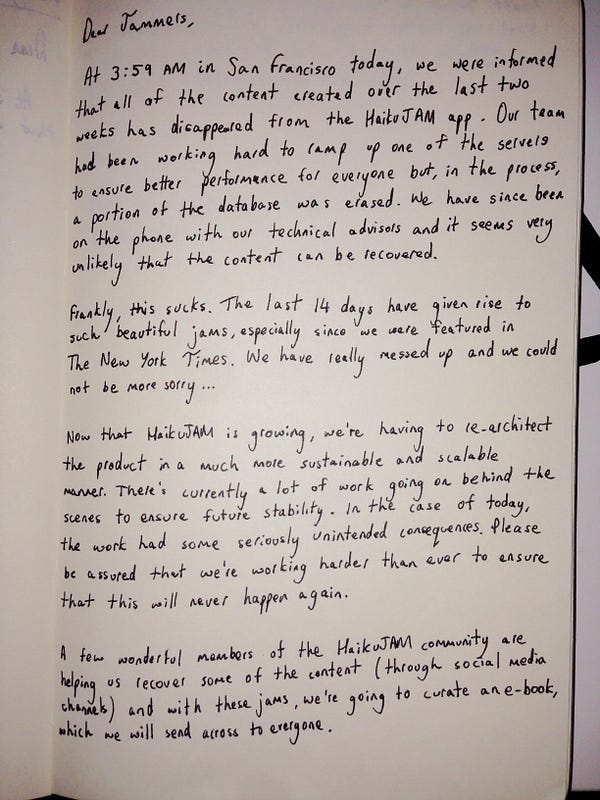 Dear Jammers,
At 3:59 AM in San Francisco today, we were informed
that all of the content created over the last two
weeks has disappeared from the HaikuJAM app. Our team
had been working hard to ramp up one of the servers
to ensure better performance for everyone but, in the process,
a portion of the database was erased. We have since been
on the phone with our technical advisors and it seems very
unlikely that the content can be recovered.
Frankly, this sucks. The last 14 days have given rise to
such beautiful jams, especially since we were featured in
The New York Times. We have really messed up and we could
not be more sorry...
Now that HaikuJAM is growing, we're having to re-architect
the product in a much more sustainable and scalable
manner. There's currently a lot of work going on behind the
scenes to ensure future stability. In the case of today,
the work had some seriously unintended consequences. Please
be assured that we're working harder than ever to ensure
that this will never happen again.
A few wonderful members of the HaikuJAM community are
helping us recover some of the content (through social media
channels) and with these jams, we're going to curate an e-book,
which we will send across to everyone.